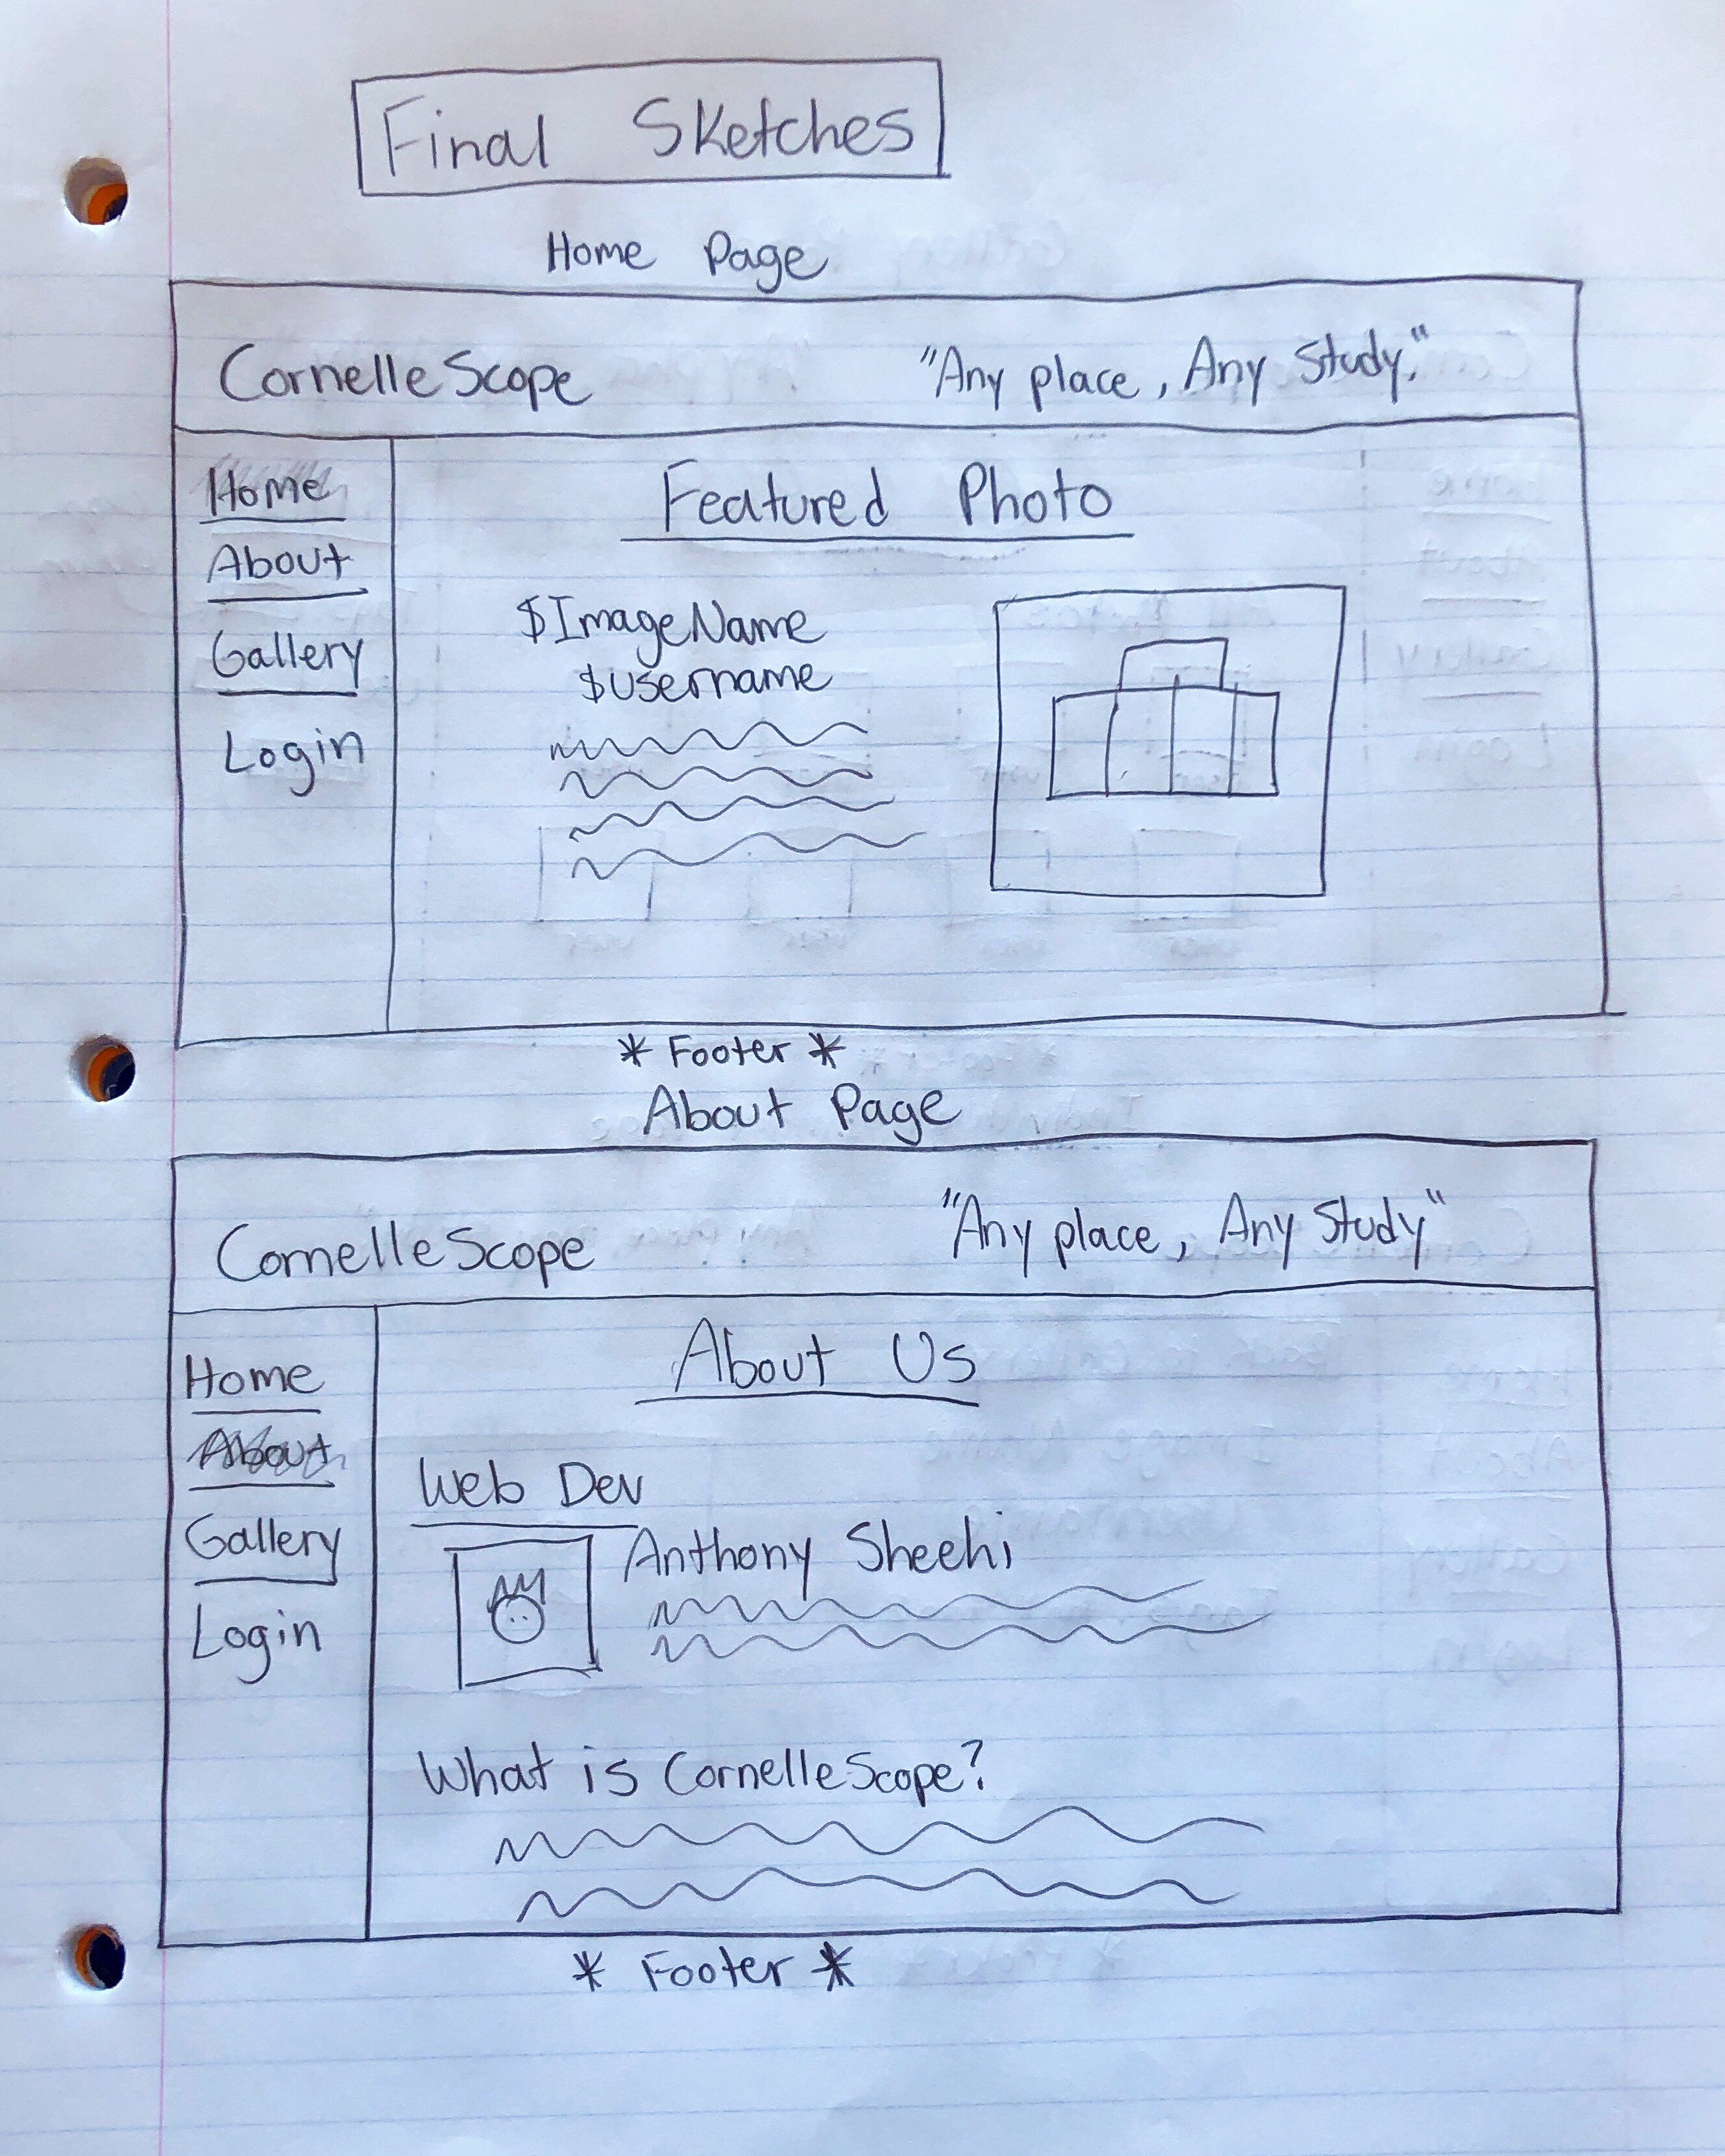 Final Sketches
Home Page
CornelleScope "Any place, Any Study."
Home
About
Gallery
Login
Featured Photo
$ImageName
$username
* Footer *
About Page
CornelleScope "Any place, Any Study"
Home
About
Gallery
Login
About Us
Web Dev
Anthony Sheehi
What is CornelleScope?
* Footer *